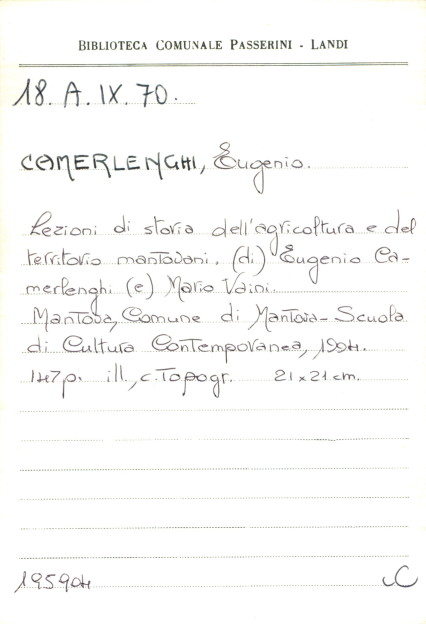 BIBLIOTECA COMUNALE PASSERINI - LANDI
18. A. IX. 70.
CAMERLENGHI, Eugenio.
Lezioni di storia dell'agricoltura e del
territorio mantovani. (di) Eugenio Ca-
merlenghi (e) Mario Vaini.
Mantova, Comune di Mantova - Scuola
di Cultura Contemporanea, 1994.
147 p. ill., c. Topogr. 21 x 21 cm.
195904